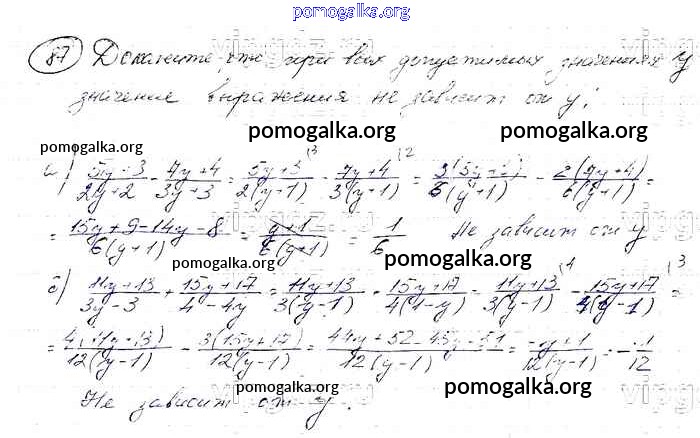 pomogalka.org
87 Докажите, что при всех допустимых значениях y
значение выражения не зависит от y:
pomogalka.org pomogalka.org
а) (5y+3)/(2y+2) - (7y+4)/(3y+3) = (5y+3)/(2(y+1)) (3 - (7y+4)/(3(y+1)) (2 = 3(5y+3)/(6(y+1)) - 2(7y+4)/(6(y+1)) =
= (15y+9-14y-8)/(6(y+1)) = (y+1)/(6(y+1)) = 1/6 Не зависит от y
pomogalka.org pomogalka.org
б) (11y+13)/(3y-3) + (15y+17)/(4-4y) = (11y+13)/(3(y-1)) - (15y+17)/(4(1-y)) = (11y+13)/(3(y-1)) (4 - (15y+17)/(4(y-1)) (3 =
= 4(11y+13)/(12(y-1)) - 3(15y+17)/(12(y-1)) = (44y+52-45y-51)/(12(y-1)) = (-y+1)/(12(y-1)) = -1/12
pomogalka.org pomogalka.org
Не зависит от y.
pomogalka.org